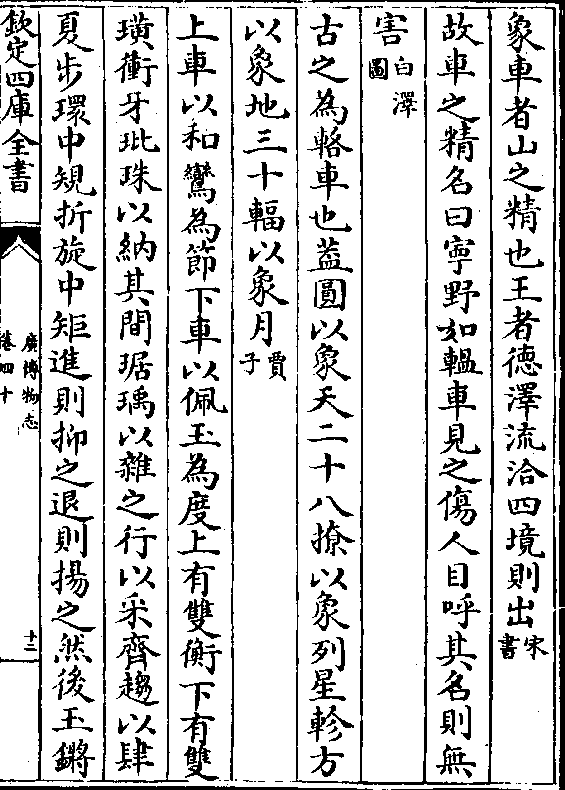 象車者山之精也王者德澤流洽四境則出宋書
故車之精名曰寧野如轀車見之傷人目呼其名則無
害白澤圖
古之為輅車也葢圓以象天二十八橑以象列星軫方
以象地三十輻以象月賈子
上車以和鸞為節下車以佩玉為度上有雙衡下有雙
璜衝牙玭珠以納其間琚瑀以雜之行以采齊趨以肆
夏步環中規折旋中矩進則抑之退則揚之然後玉鏘
欽定四庫全書
廣博物志
卷四十
十三